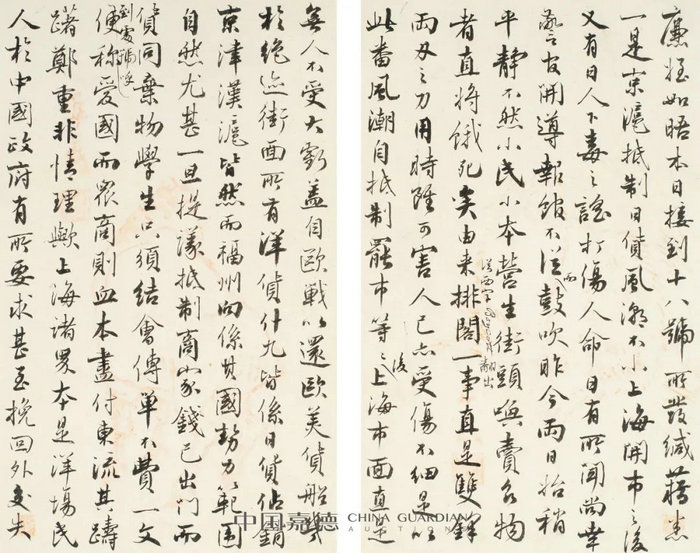 廉侄如晤本日接到十八號所發緘藉悉
一是京滬抵制日貨風潮不小上海開市之後
又有日人下毒之謠打傷人命日有所聞尚幸
警官開導報館不從而鼓吹昨今兩日始稍
平靜不然小民小本營生街頭喚賣食物
者直將餓死矣由來排閣一事直是雙鋒
兩刃之刀用時雖可害人己亦受傷不細是以
此番風潮自抵制罷市等之後上海市面直是
無人不受大虧蓋自歐戰以還歐美貨船幾
於絕迹街面所有洋貨什九皆係日貨佔銷
京津漢滬皆然而福州向係其國勢力範圍
自然尤甚一旦提議抵制商家錢已出門而
貨同棄物學生只須結會傳單不費一文
到處演說
便稱愛國而眾商則血本盡付東流其躊
躇鄭重非情理歟上海諸界本是洋場民
人於中國政府有所要求甚至挽回外交失
中国嘉德 CHINA GUARDIAN
AUCTIONS